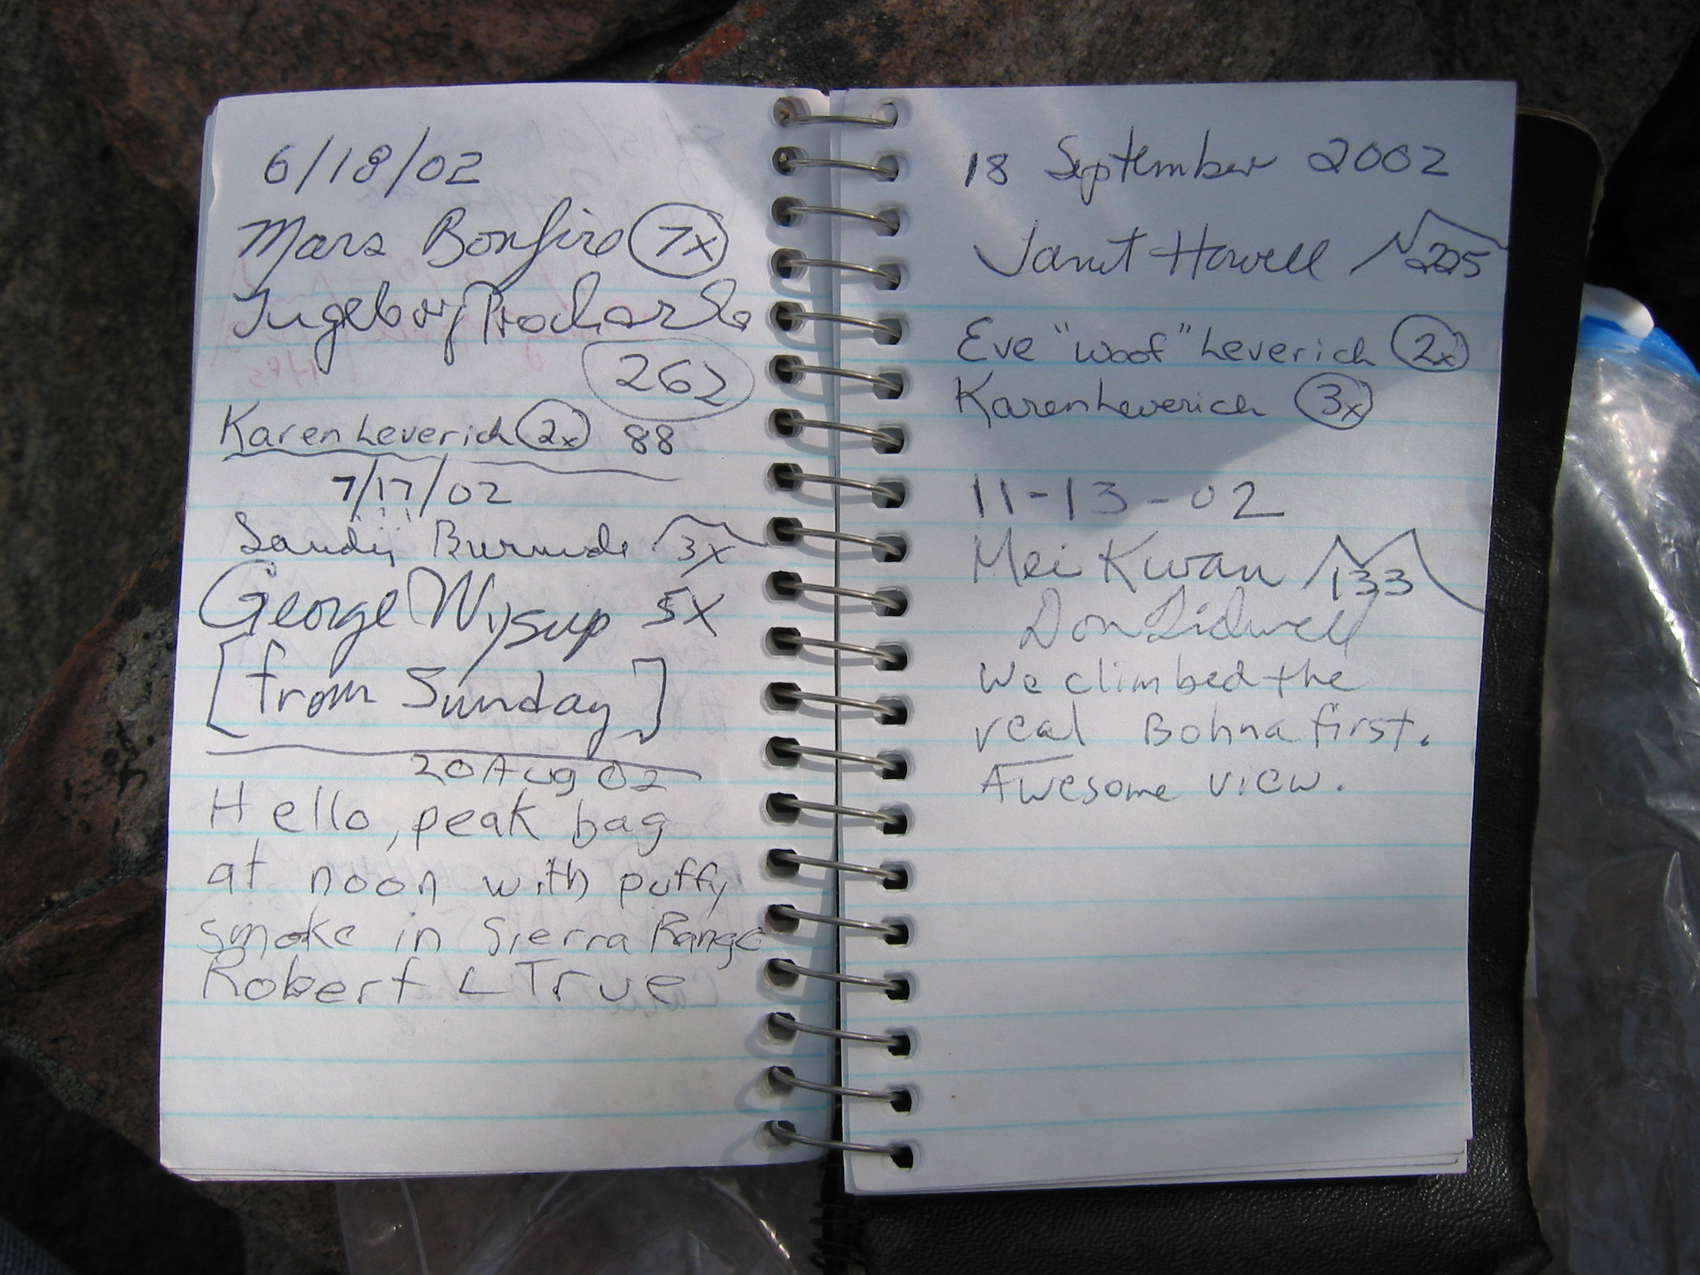 6/18/02
Mars Bonfire 7x
Ingeborg Prochazka
262
Karen Leverich 2x 88
7/17/02
Sandy Burnside 3x
George Wysup 5X
[from Sunday]
20 Aug 02
Hello, peak bag
at noon with puffy
smoke in Sierra Range
Robert L True
18 September 2002
Janet Howell 225
Eve "Woof" Leverich 2x
Karen Leverich 3x
11-13-02
Mei Kwan 133
Don Lidwell
We climbed the
real Bohna first.
Awesome view.